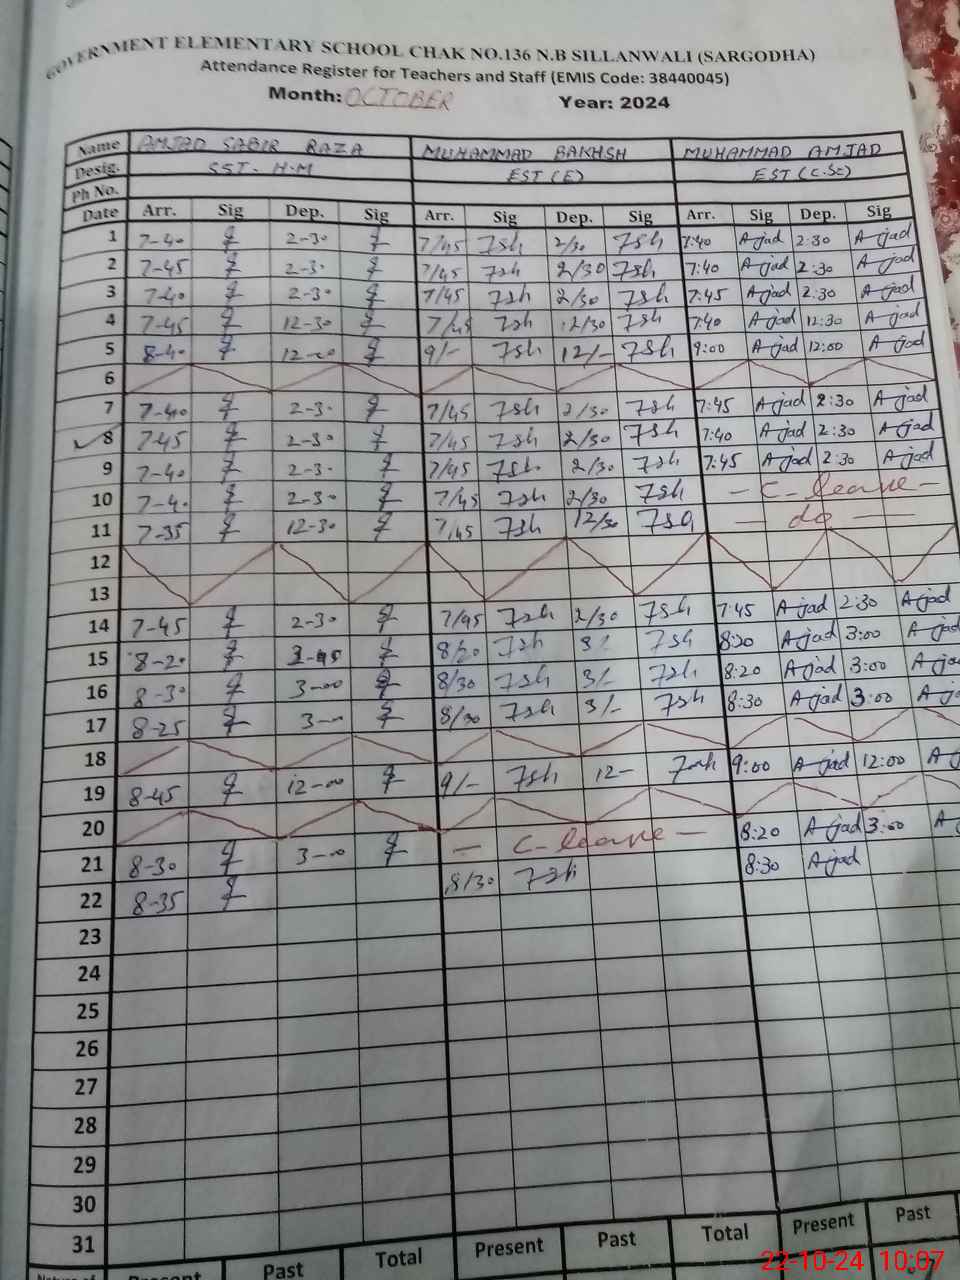 GOVERNMENT ELEMENTARY SCHOOL CHAK NO.136 N.B SILLANWALI (SARGODHA)
Attendance Register for Teachers and Staff (EMIS Code: 38440045)
Month: OCTOBER Year: 2024
Name AMJAD SABIR RAZA MUHAMMAD BAKHSH MUHAMMAD AMJAD
Desig. SST. H.M EST (E) EST (C.Sc)
Ph No.
Date Arr. Sig Dep. Sig Arr. Sig Dep. Sig Arr. Sig Dep. Sig
1 7-40 2-30 7/45 2/30 7:40 Amjad 2:30 Amjad
2 7-45 2-30 7/45 2/30 7:40 Amjad 2:30 Amjad
3 7-40 2-30 7/45 2/30 7:45 Amjad 2:30 Amjad
4 7-45 12-30 7/45 12/30 7:40 Amjad 12:30 Amjad
5 8-40 12-00 9/- 12/- 9:00 Amjad 12:00 Amjad
6
7 7-40 2-30 7/45 2/30 7:45 Amjad 2:30 Amjad
8 7-45 2-30 7/45 2/30 7:40 Amjad 2:30 Amjad
9 7-40 2-30 7/45 2/30 7:45 Amjad 2:30 Amjad
10 7-40 2-30 7/45 2/30 - C-leave -
11 7-35 12-30 7/45 12/30 - do -
12
13
14 7-45 2-30 7/45 2/30 7:45 Amjad 2:30 Amjad
15 8-20 8/20 3/ 8:20 Amjad 3:00 Amjad
16 8-30 3-00 8/30 3/- 8:20 Amjad 3:00 Amjad
17 8-25 3-00 8/30 3/- 8:30 Amjad 3:00
18
19 8-45 12-00 9/- 12- 9:00 Amjad 12:00
20
21 8-30 3-00 - C-leave - 8:20 Amjad 3:00
22 8-35 8/30 8:30 Amjad
23
24
25
26
27
28
29
30
31
Present Past Total Present Past Total Present Past
22-10-24 10:07